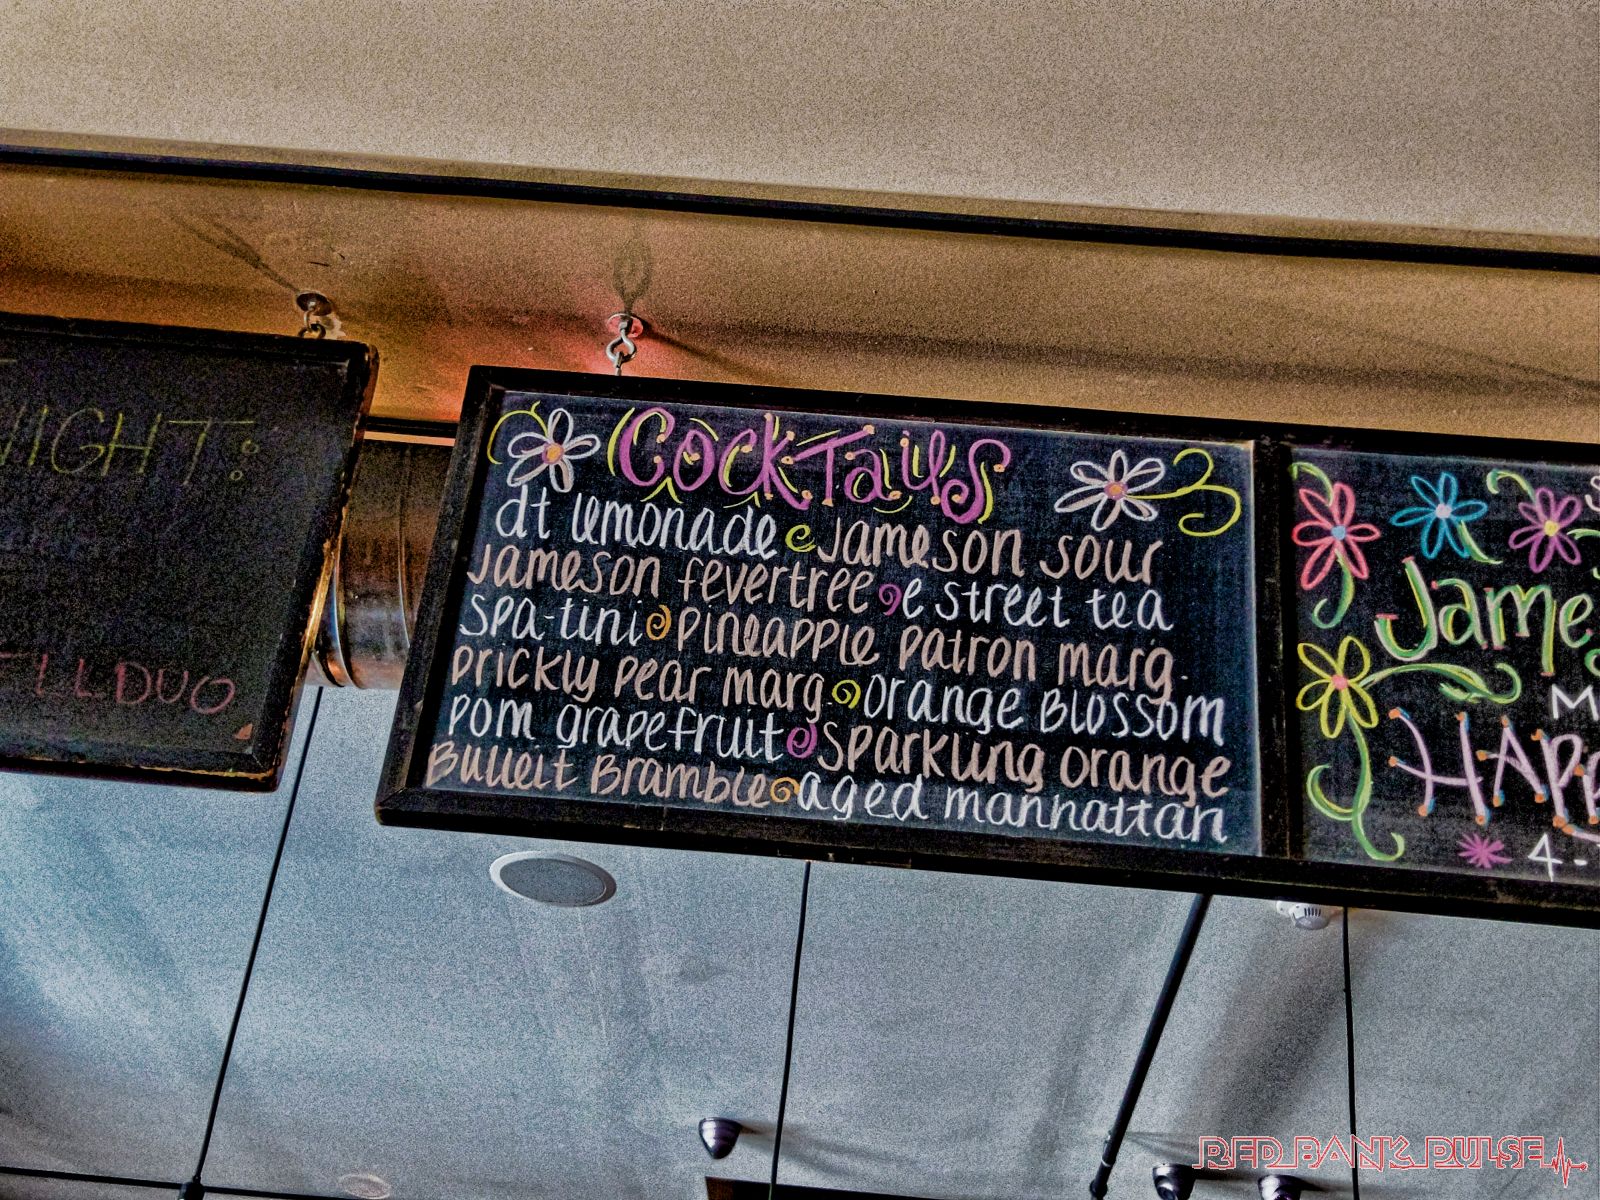 NIGHT:
LL DUO
Cocktails
dt lemonade Jameson sour
Jameson fevertree e street tea
spa-tini pineapple patron marg.
prickly pear marg. orange blossom
pom grapefruit sparkling orange
Bulleit Bramble aged manhattan
James
HAPP
4-
RED BANK PULSE